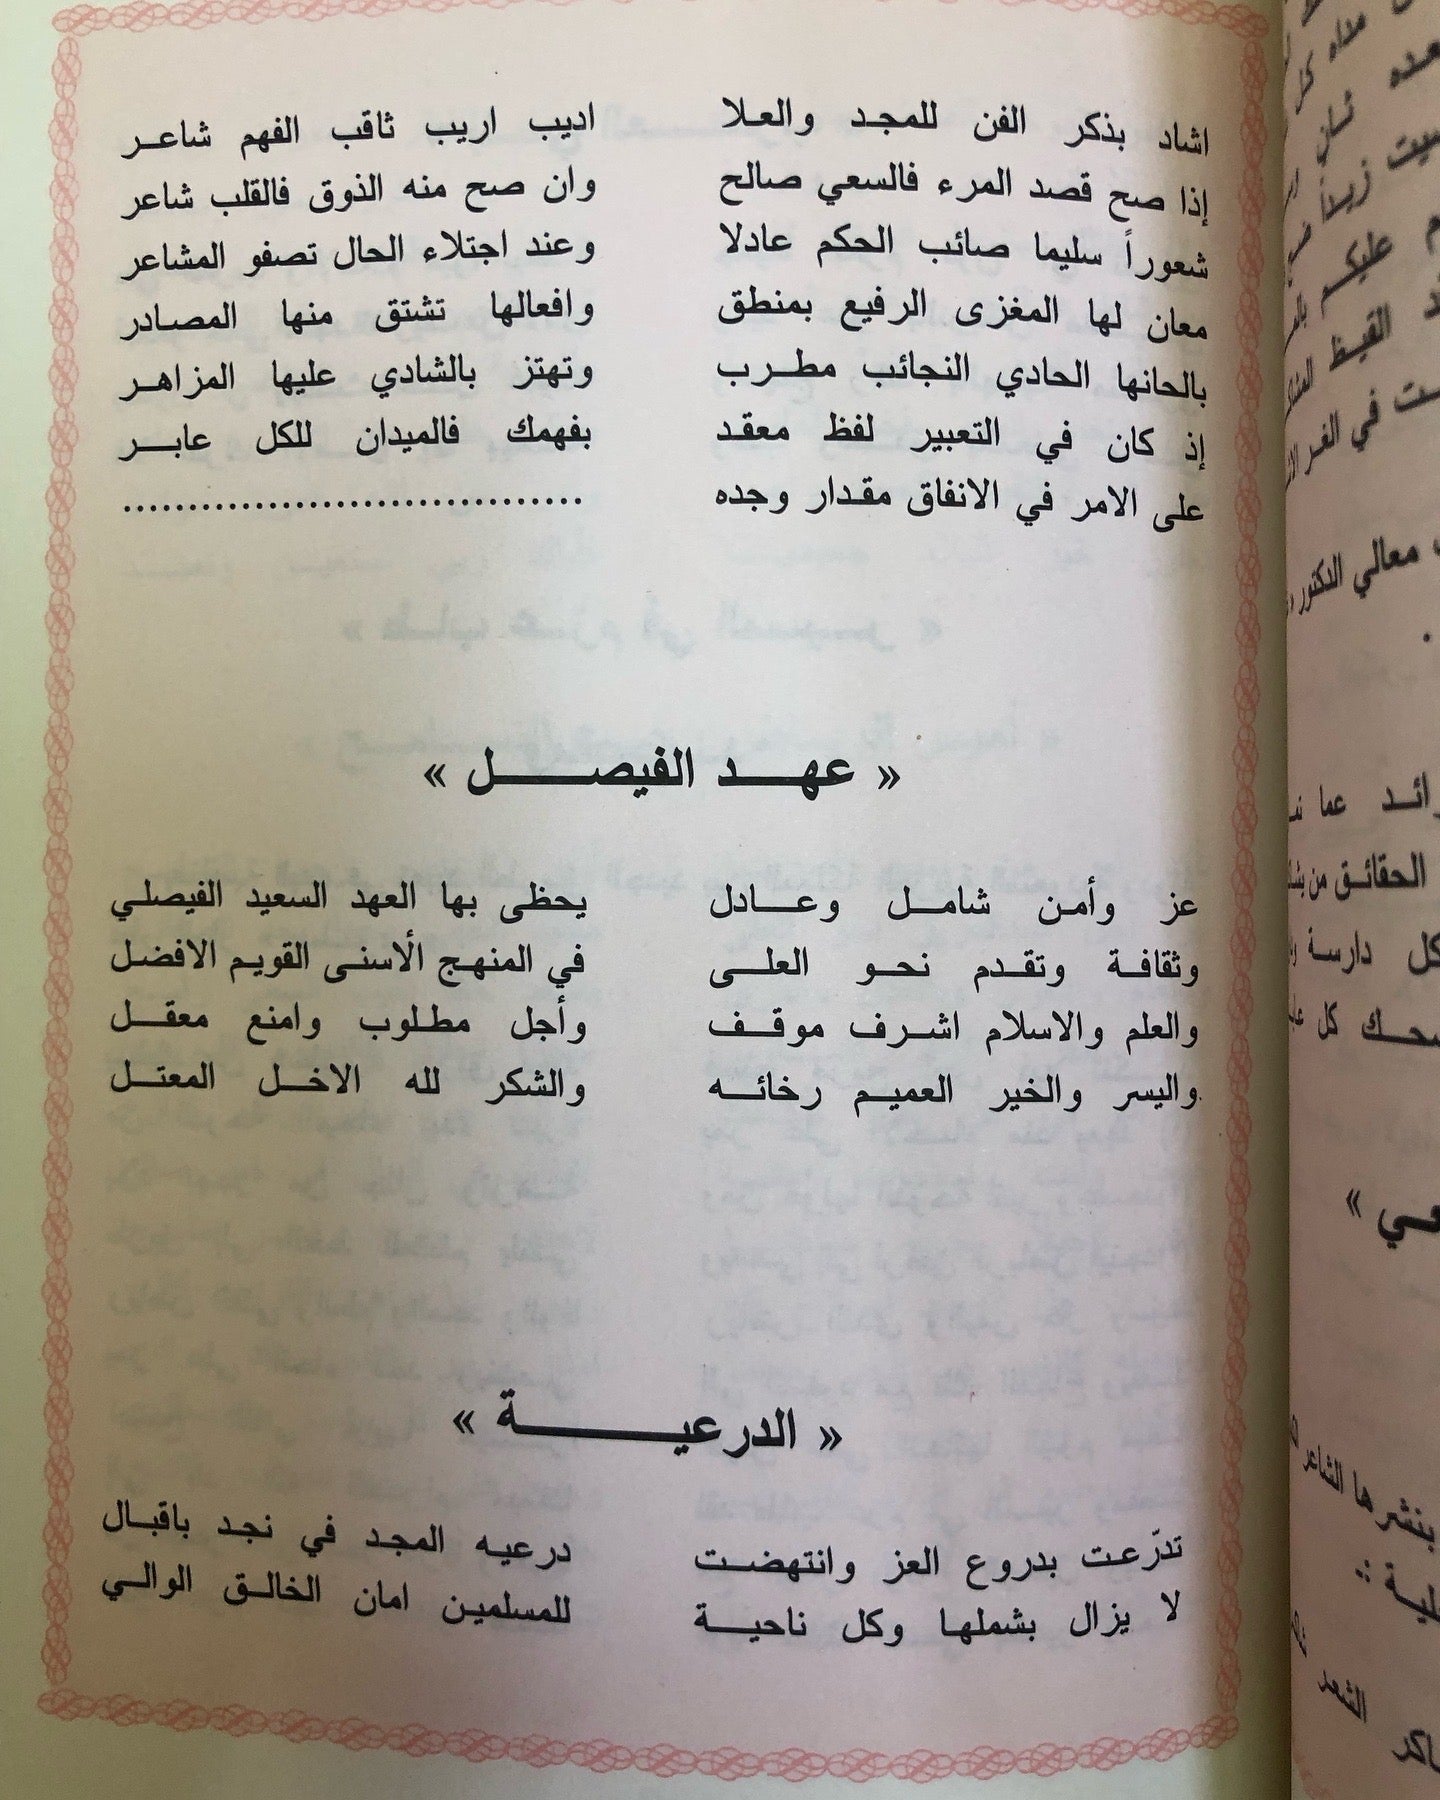 اشاد بذكر الفن للمجد والعلا اديب اريب ثاقب الفهم شاعر
إذا صح قصد المرء فالسعي صالح وان صح منه الذوق فالقلب شاعر
شعوراً سليما صائب الحكم عادلا وعند اجتلاء الحال تصفو المشاعر
معان لها المغزى الرفيع بمنطق وافعالها تشتق منها المصادر
بالحانها الحادي النجائب مطرب وتهتز بالشادي عليها المزاهر
إذ كان في التعبير لفظ معقد بفهمك فالميدان للكل عابر
على الامر في الانفاق مقدار وجده ...................................
« عهد الفيصل »
عز وأمن شامل وعادل يحظى بها العهد السعيد الفيصلي
وثقافة وتقدم نحو العلى في المنهج الأسنى القويم الافضل
والعلم والاسلام اشرف موقف وأجل مطلوب وامنع معقل
واليسر والخير العميم رخائه والشكر لله الاخل المعتل
« الدرعية »
تدرّعت بدروع العز وانتهضت درعيه المجد في نجد باقبال
لا يزال بشملها وكل ناحية للمسلمين امان الخالق الوالي
كل
عليكم
القيظ
في
معالي الدكتور
عما
الحقائق من
كل دارسة
كل
بنشرها الشاعر